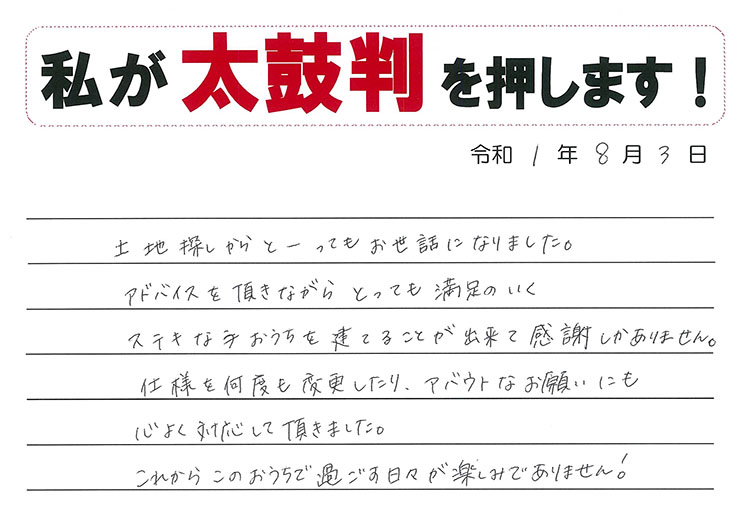 私が太鼓判を押します！
令和 1 年 8 月 3 日
土地探しからと－ってもお世話になりました。
アドバイスを頂きながらとっても満足のいく
ステキな手おうちを建てることが出来て感謝しかありません。
仕様を何度も変更したり、アバウトなお願いにも
心よく対応して頂きました。
これからこのおうちで過ごす日々が楽しみでありません！